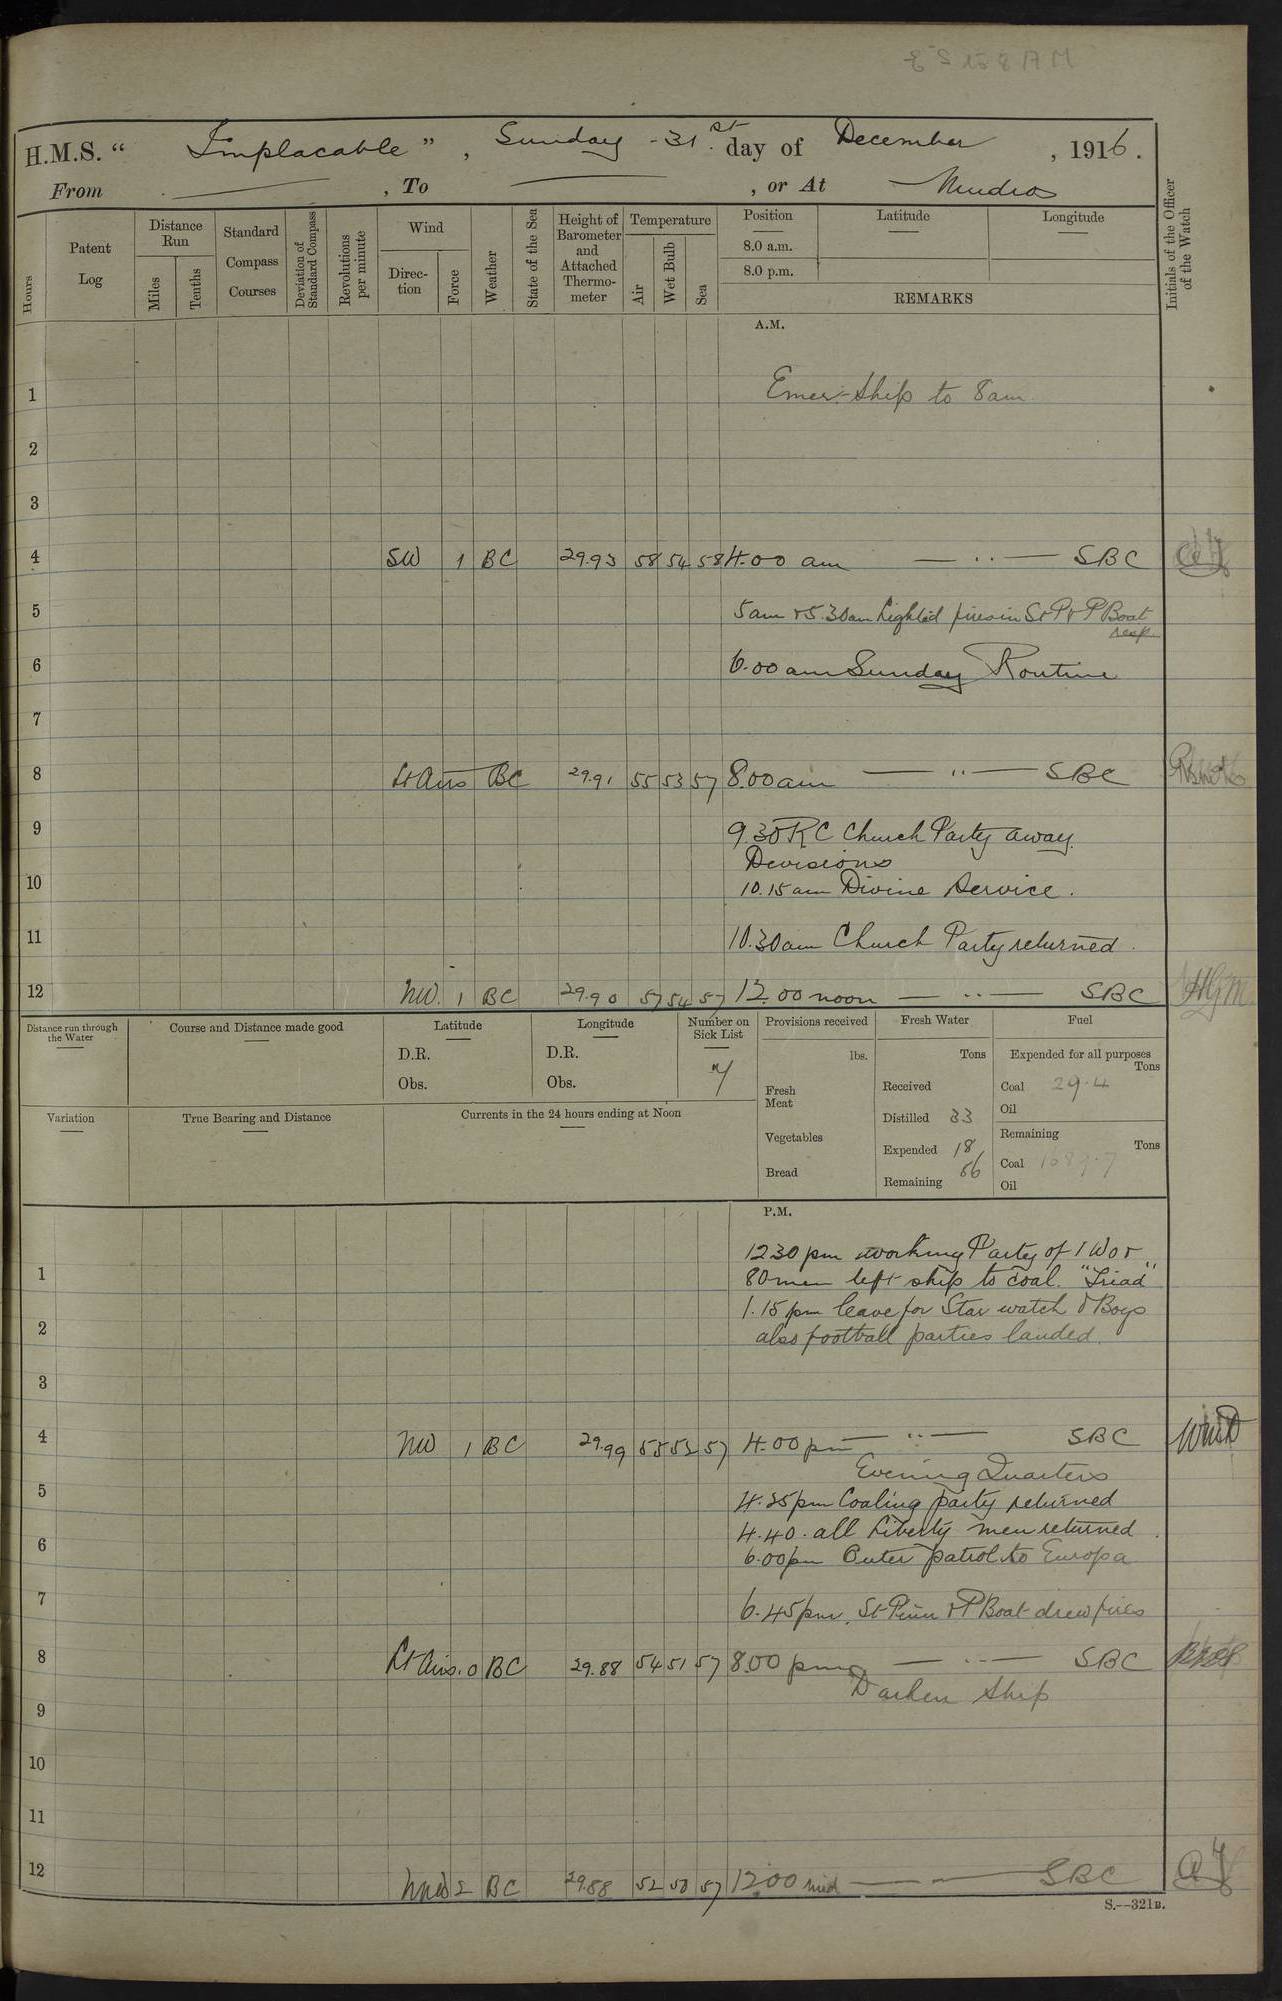 H.M.S. “ Implacable ” , Sunday - 31st. day of December , 1916.
From , To , or At Mudros
Hours
Patent Log
Distance Run
Miles
Tenths
Standard Compass Courses
Deviation of Standard Compass
Revolutions per minute
Wind
Direc-tion
Force
Weather
State of the Sea
Height of Barometer and Attached Thermo-meter
Temperature
Air
Wet Bulb
Sea
Position
8.0 a.m.
8.0 p.m.
Latitude
Longitude
REMARKS
Initials of the Officer of the Watch
A.M.
1 Emer. Ship to 8am
2
3
4 SW 1 BC 29.93 58 54 58 4.00 am — .. — SBC
5 5am & 5.30am Lighted fires in St P & P Boat
resp.
6 6.00 am Sunday Routine
7
8 Lt Airs BC 29.91 55 53 57 8.00 am — .. — SBC
9 9.30 RC Church Party away.
Devisions
10 10.15 am Divine Service.
11 10.30am Church Party returned.
12 NW. 1 BC 29.90 57 54 57 12.00 noon — .. — SBC HGM
Distance run through the Water
Course and Distance made good
Latitude
D.R.
Obs.
Longitude
D.R.
Obs.
Number on Sick List
7
Variation
True Bearing and Distance
Currents in the 24 hours ending at Noon
Provisions received
lbs.
Fresh Meat
Vegetables
Bread
Fresh Water
Tons
Received
Distilled 33
Expended 18
Remaining 56
Fuel
Expended for all purposes
Tons
Coal 29.4
Oil
Remaining
Tons
Coal 1689.7
Oil
P.M.
12 30 pm working Party of 1 WO &
1 80 men left ship to coal. "Triad"
1.15 pm leave for Star watch & Boys
2 also football parties landed.
3
4 NW 1 BC 29.99 55 53 57 4.00 pm — .. — SBC
Evening Quarters
5 4.35pm Coaling party returned
4.40. all Liberty men returned.
6 6.00pm Outer patrol to Europa
7 6.45pm. St Pinn & P Boat drew fires
8 Lt Airs. 0 BC 29.88 54 51 57 8.00 pm — .. — SBC
Darken Ship
9
10
11
12 NNW 2 BC 29.88 52 50 57 12.00 mid — — SBC
S.—321B.